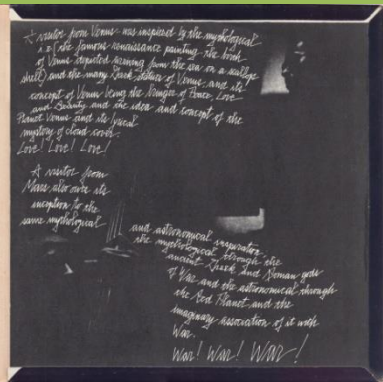 A visitor from Venus was inspired by the mythological
i.e. the famous renaissance painting the birth
of Venus depicted arising from the sea on a scallop
shell) and the many Greek statues of Venus, and its
concept of Venus being the Bringer of Peace, Love
and Beauty and the idea and concept of the
Planet Venus and its lyrical
mystery of cloud cover.
Love! Love! Love!
A visitor from
Mars also owes its
inception to the
same mythological
and astronomical inspiration
the mythological through the
ancient Greek and Roman gods
of War and the astronomical through
the Red Planet and the
imaginary association of it with
War.
War! War! War!